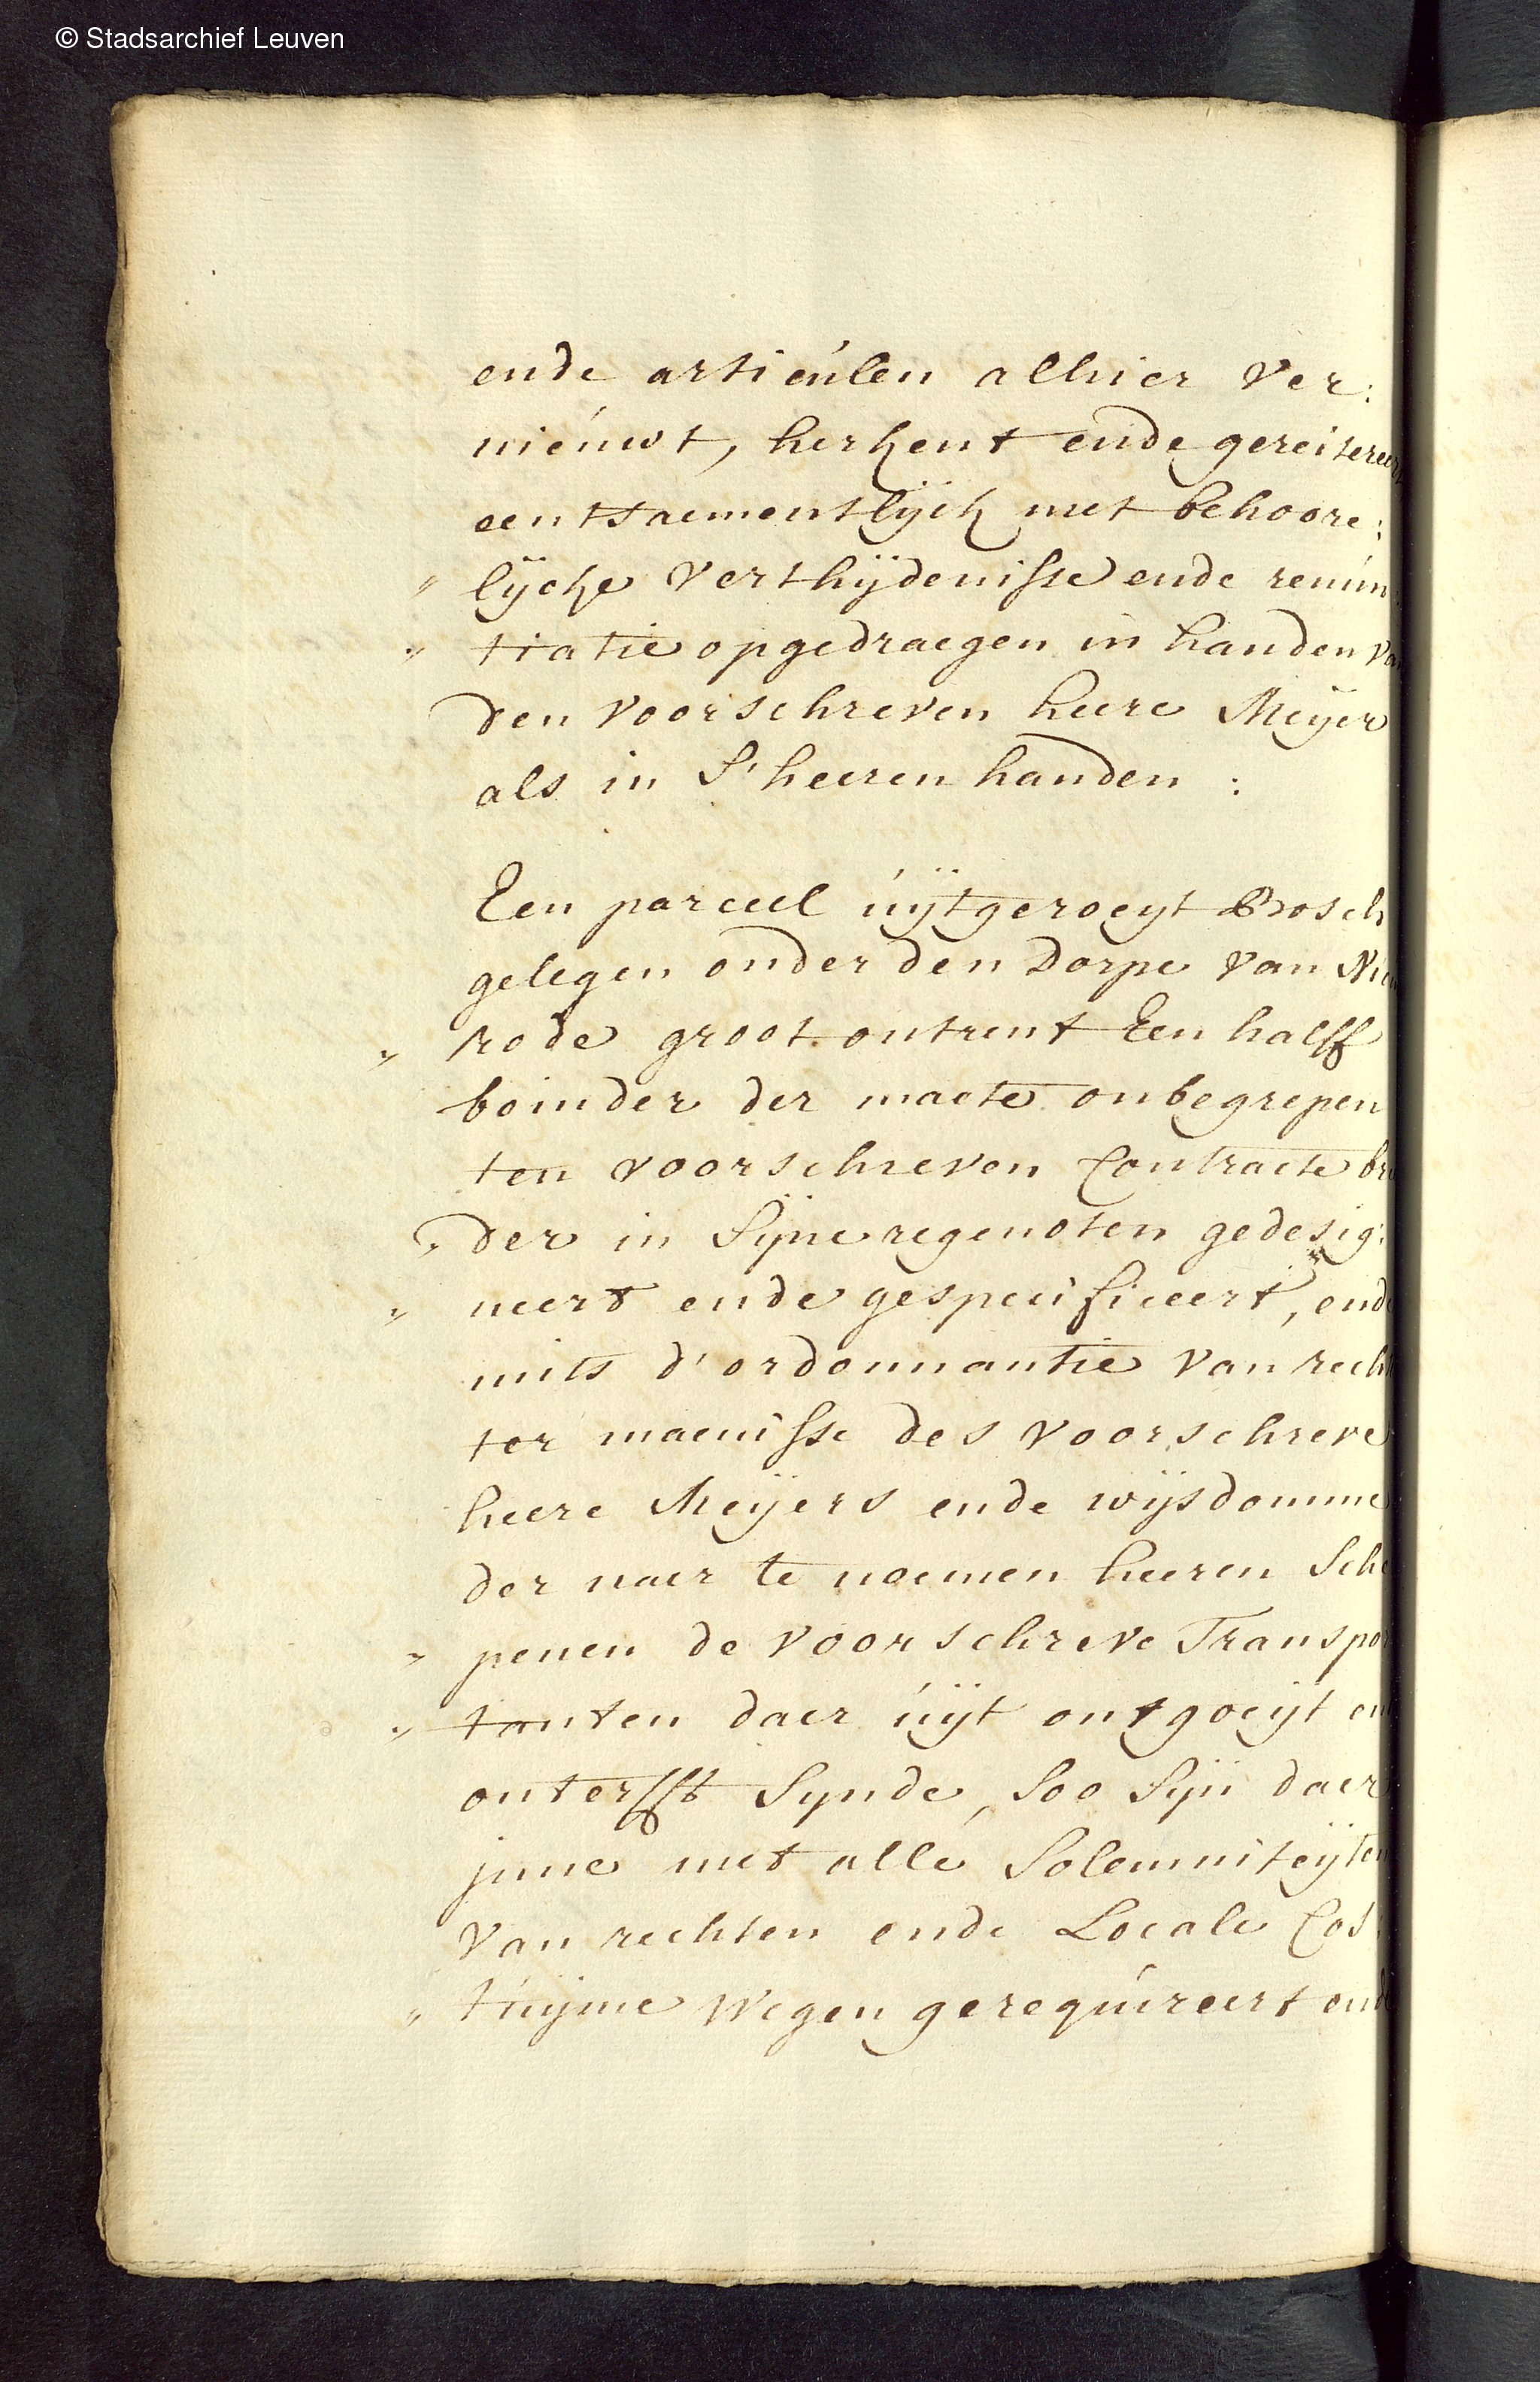 © Stadsarchief Leuven
ende articúlen alhier ver:
niéuwt, herkent ende gereitereer
eentsaementlijck met behoore:
" lijcke verthijdenisse ende renún
" tiatie opgedraegen in handen va
den voorschreven heere Meijer
als in S'heeren handen :
Een parceel úijtgeroeyt Bosch
gelegen onder den Dorpe van Nieu
" rode groot ontrent Een halff
boinder der maete onbegrepen
ten voorschreven Contracte bre
" der in Sijne regenoten gedesig:
" neert ende gespecificeert, ende
mits d'ordonnantie van recht
ter maenisse des voorschreve
heere Meijers ende wijsdomme
der naer te noemen heeren Sche
" penen de voorschreve Transpor
" tanten daer úijt ontgoeijt en
onterfft Synde, Soo Sijn daer
jnne met alle Solemniteijten
van rechten ende Locale Cos:
" túijme wegen gerequireert ende